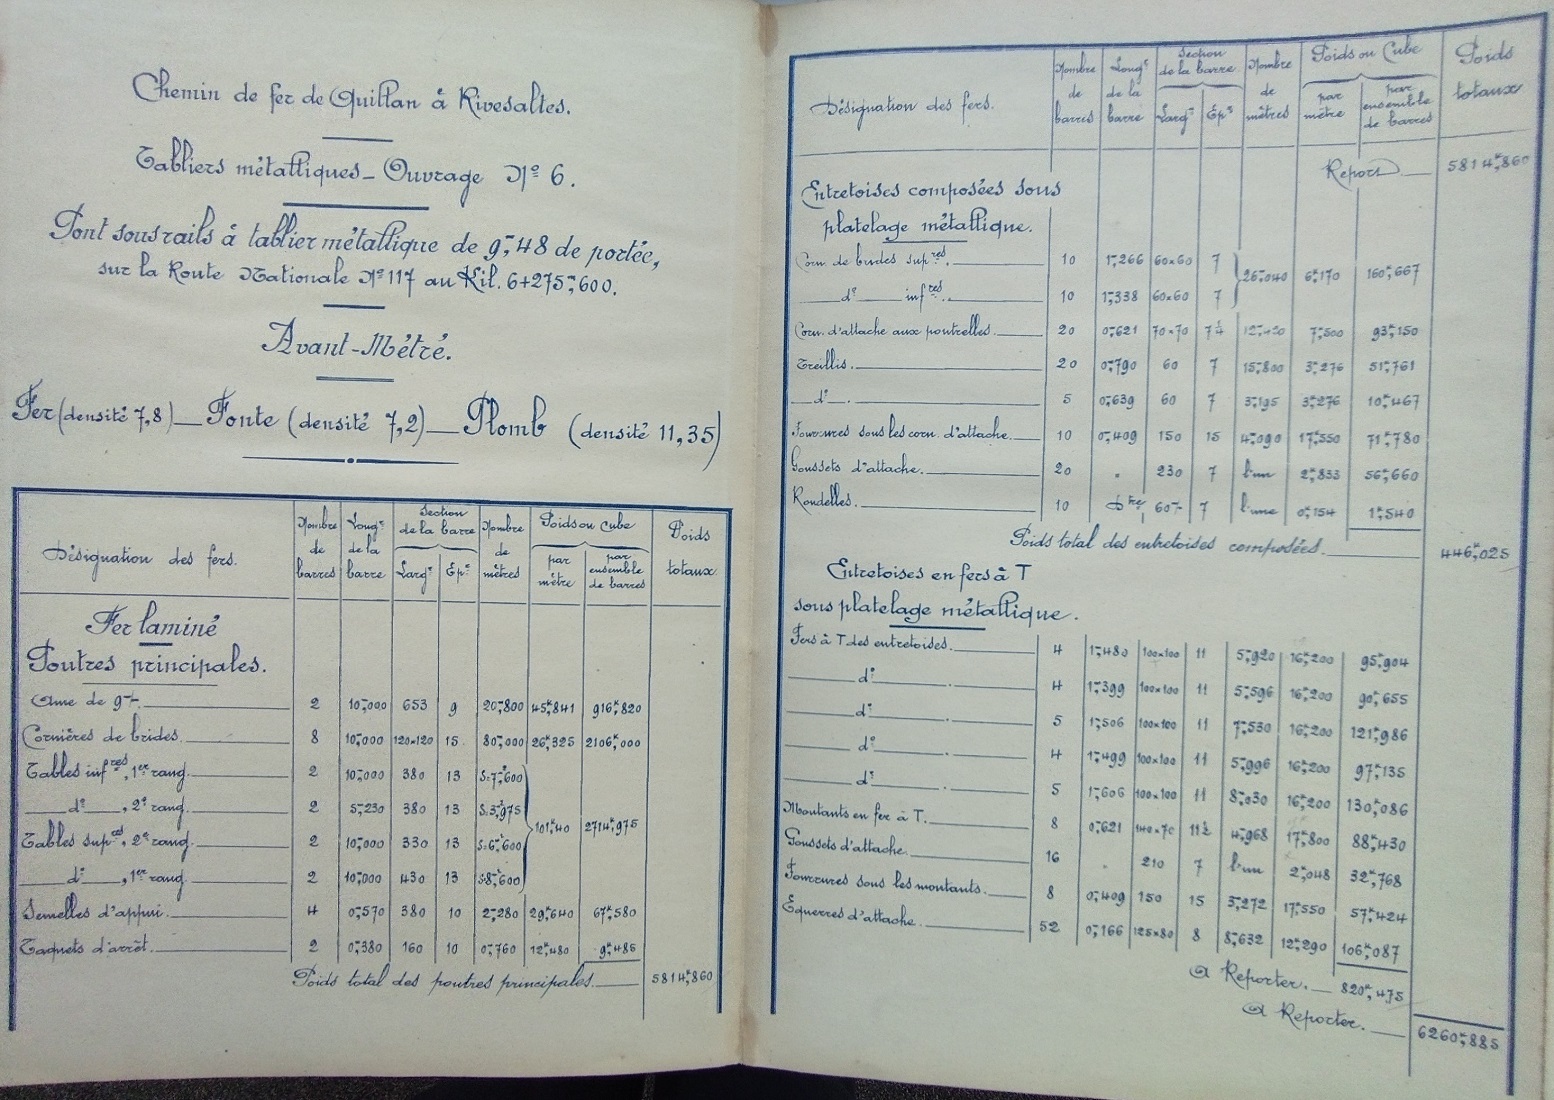 Chemin de fer de Quillan à Rivesaltes.
Tabliers métalliques_ Ouvrage Nº 6.
Pont sous rails à tablier métallique de 9ᵐ,48 de portée,
sur la Route Nationale Nº 117 au Kil. 6+275ᵐ,600.
Avant-Métré.
Fer (densité 7,8) _ Fonte (densité 7,2) _ Plomb (densité 11,35)
Désignation des fers. Nombre de barres Longʳ de la barre Section de la barre Largʳ Epʳ Nombre de mètres Poids ou Cube par mètre par ensemble de barres Poids totaux
Fer laminé
Poutres principales.
Ame de 9ᵐ/ᵐ 2 10ᵐ,000 653 9 20ᵐ,800 45ᵏ,841 916ᵏ,820
Cornières de brides. 8 10ᵐ,000 120×120 15 80ᵐ,000 26ᵏ,325 2106ᵏ,000
Tables infʳᵉˢ, 1ᵉʳ rang. 2 10ᵐ,000 380 13 S=7,600
dº, 2ᵉ rang. 2 5ᵐ,230 380 13 S=3,975
101ᵏ,40 2714ᵏ,975
Tables supʳᵉˢ, 2ᵉ rang. 2 10ᵐ,000 330 13 S=6,600
dº, 1ᵉʳ rang. 2 10ᵐ,000 430 13 S=8,600
Semelles d'appui. 4 0ᵐ,570 380 10 2ᵐ,280 29ᵏ,640 67ᵏ,580
Taquets d'arrêt. 2 0ᵐ,380 160 10 0ᵐ,760 12ᵏ,480 9ᵏ,485
Poids total des poutres principales. 5814ᵏ,860
Désignation des fers. Nombre de barres Longʳ de la barre Section de la barre Largʳ Epʳ Nombre de mètres Poids ou Cube par mètre par ensemble de barres Poids totaux
Report 5814ᵏ,860
Entretoises composées sous
platelage métallique.
Corn. de brides supʳᵉˢ. 10 1ᵐ,266 60×60 7
26ᵐ,040 6ᵏ,170 160ᵏ,667
dº infʳᵉˢ. 10 1ᵐ,338 60×60 7
Corn. d'attache aux poutrelles. 20 0ᵐ,621 70×70 7½ 12ᵐ,420 7ᵏ,500 93ᵏ,150
Treillis. 20 0ᵐ,790 60 7 15ᵐ,800 3ᵏ,276 51ᵏ,761
dº. 5 0ᵐ,639 60 7 3ᵐ,195 3ᵏ,276 10ᵏ,467
Fourrures sous les corn. d'attache. 10 0ᵐ,409 150 15 4ᵐ,090 17ᵏ,550 71ᵏ,780
Goussets d'attache. 20 " 230 7 l'un 2ᵏ,833 56ᵏ,660
Rondelles. 10 Dᵗʳᵉ 60ᵐ/ᵐ 7 l'une 0ᵏ,154 1ᵏ,540
Poids total des entretoises composées. 446ᵏ,025
Entretoises en fers à T
sous platelage métallique.
Fers à T des entretoises. 4 1ᵐ,480 100×100 11 5ᵐ,920 16ᵏ,200 95ᵏ,904
dº. 4 1ᵐ,399 100×100 11 5ᵐ,596 16ᵏ,200 90ᵏ,655
dº. 5 1ᵐ,506 100×100 11 7ᵐ,530 16ᵏ,200 121ᵏ,986
dº. 4 1ᵐ,499 100×100 11 5ᵐ,996 16ᵏ,200 97ᵏ,135
dº. 5 1ᵐ,606 100×100 11 8ᵐ,030 16ᵏ,200 130ᵏ,086
Montants en fer à T. 8 0ᵐ,621 140×70 11½ 4ᵐ,968 17ᵏ,800 88ᵏ,430
Goussets d'attache. 16 " 210 7 l'un 2ᵏ,048 32ᵏ,768
Fourrures sous les montants. 8 0ᵐ,409 150 15 3ᵐ,272 17ᵏ,550 57ᵏ,424
Equerres d'attache. 52 0ᵐ,166 125×80 8 8ᵐ,632 12ᵏ,290 106ᵏ,087
A Reporter. 820ᵏ,475
A Reporter. 6260ᵏ,885